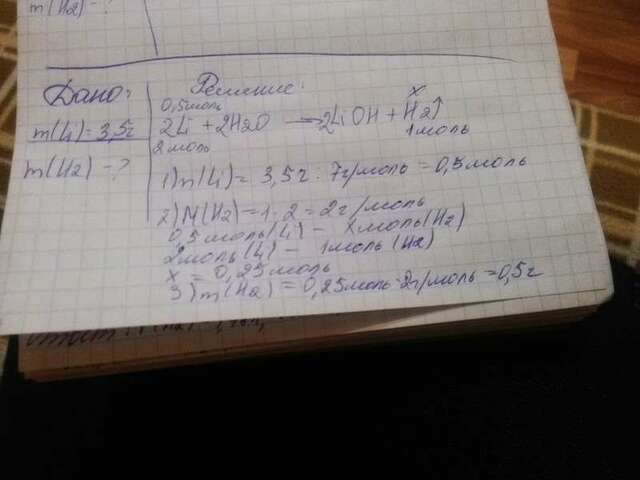 m(H2) - ?
Дано:
m(Li) = 3,5г
m(H2) - ?
Решение:
0,5моль x
2Li + 2H2O → 2LiOH + H2↑
2моль 1моль
1) n(Li) = 3,5г : 7г/моль = 0,5моль
2) M(H2) = 1 · 2 = 2г/моль
0,5моль(Li) - xмоль(H2)
2моль(Li) - 1моль(H2)
x = 0,25моль
3) m(H2) = 0,25моль · 2г/моль = 0,5г